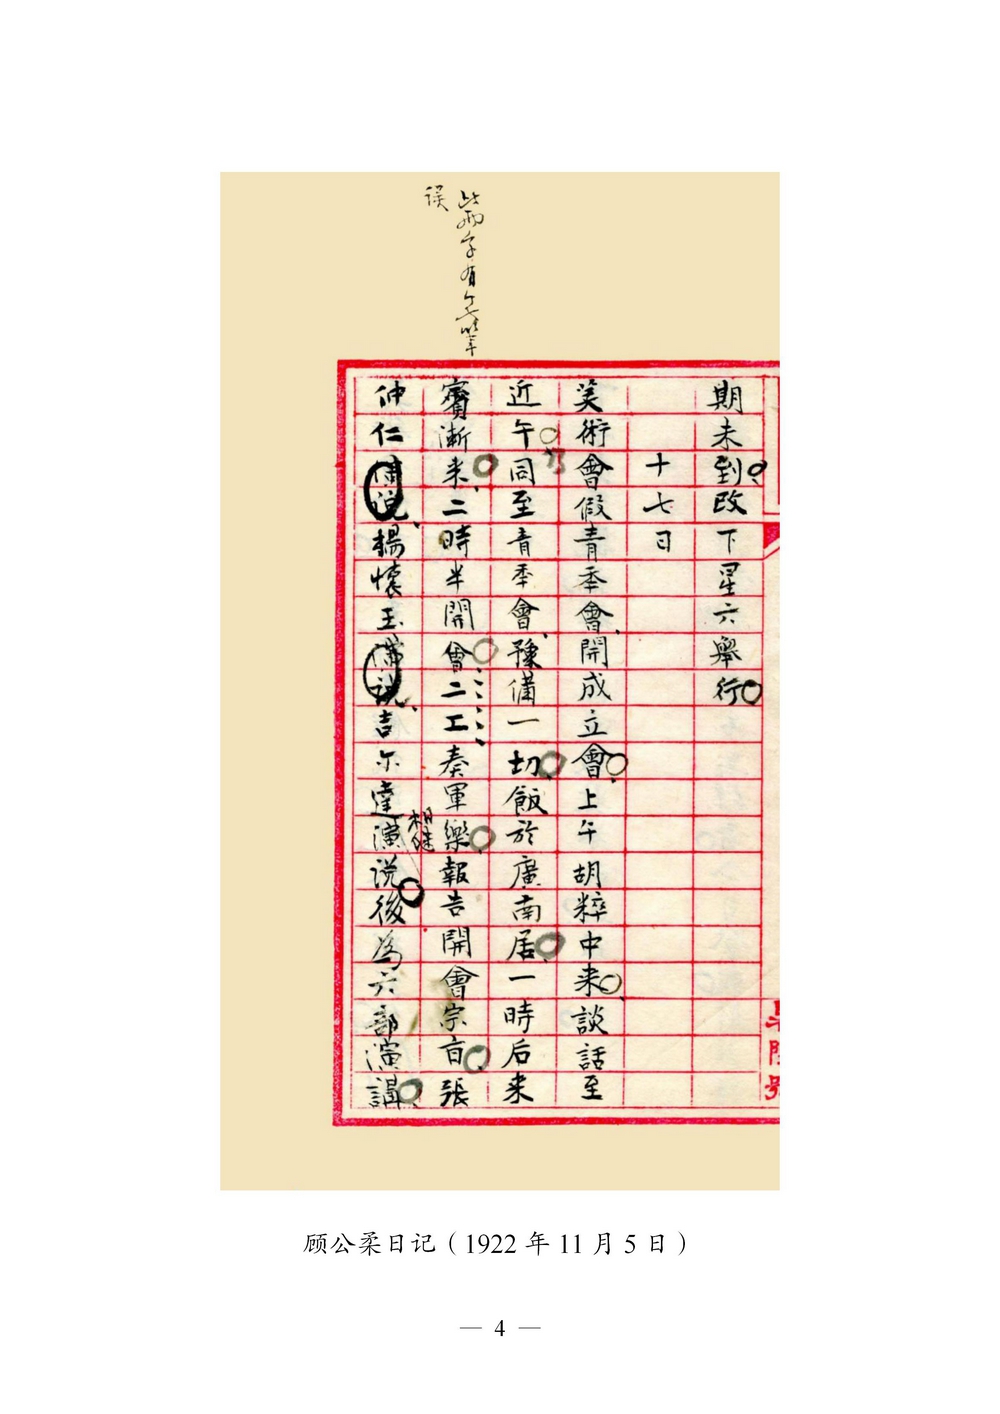 此兩字有笔筆
误
期未到改下星六舉行
十七日
美術會假青年會開成立會上午胡粹中来談話至
近午同至青年會豫備一切飯於廣南居一時后来
賓漸来二時半開會二工奏軍樂報告開會宗旨張
仲仁演说楊懷玉演说吉尔達演说後為六部演講
相继
顾公柔日记（1922 年 11 月 5 日）
— 4 —